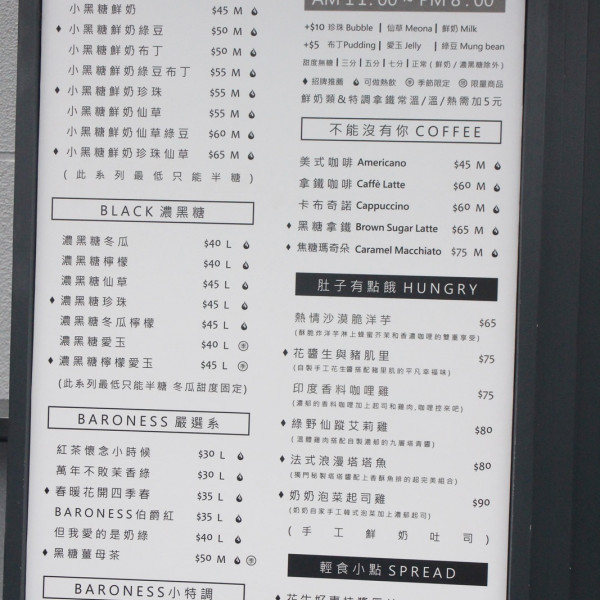 小黑糖鮮奶 $45 M
小黑糖鮮奶綠豆 $50 M
小黑糖鮮奶布丁 $50 M
小黑糖鮮奶綠豆布丁 $55 M
♦ 小黑糖鮮奶珍珠 $55 M
小黑糖鮮奶仙草 $55 M
小黑糖鮮奶仙草綠豆 $60 M
♦ 小黑糖鮮奶珍珠仙草 $65 M
(此系列最低只能半糖)
BLACK 濃黑糖
濃黑糖冬瓜 $40 L
濃黑糖檸檬 $40 L
濃黑糖仙草 $45 L
♦ 濃黑糖珍珠 $45 L
濃黑糖冬瓜檸檬 $45 L
濃黑糖愛玉 $40 L 季
♦ 濃黑糖檸檬愛玉 $45 L 季
(此系列最低只能半糖 冬瓜甜度固定)
BARONESS 嚴選系
紅茶懷念小時候 $30 L
萬年不敗茉香綠 $30 L
♦ 春暖花開四季春 $35 L
BARONESS伯爵紅 $35 L
但我愛的是奶綠 $40 L
♦ 黑糖薑母茶 $50 M 季
BARONESS 小特調
AM 11:00 ~ PM 8:00
+$10 珍珠 Bubble | 仙草 Meona | 鮮奶 Milk
+$5 布丁 Pudding | 愛玉 Jelly | 綠豆 Mung bean
甜度無糖 | 三分 | 五分 | 七分 | 正常 (鮮奶 / 濃黑糖除外)
♦ 招牌推薦 可做熱飲 季 季節限定 限 限量商品
鮮奶類&特調拿鐵常溫/溫/熱需加5元
不能沒有你 COFFEE
美式咖啡 Americano $45 M
拿鐵咖啡 Caffè Latte $60 M
卡布奇諾 Cappuccino $60 M
♦ 黑糖拿鐵 Brown Sugar Latte $65 M
♦ 焦糖瑪奇朵 Caramel Macchiato $75 M
肚子有點餓 HUNGRY
熱情沙漠脆洋芋 $65
(酥脆炸洋芋淋上蜂蜜芥茉和香濃咖哩的雙重享受)
♦ 花醬生與豬肌里 $75
(自製手工花生醬搭配豬里肌的平凡幸福味)
印度香料咖哩雞 $75
(濃郁的香料咖哩加上起司和雞肉,咖哩控來吧)
♦ 綠野仙蹤艾莉雞 $80
(溫體雞肉搭配自製濃郁的九層塔青醬)
♦ 法式浪漫塔塔魚 $80
(獨門秘製塔塔醬配上香酥魚排的超完美組合)
♦ 奶奶泡菜起司雞 $90
(奶奶自家手工韓式泡菜加上濃郁起司)
(手工鮮奶吐司)
輕食小點 SPREAD